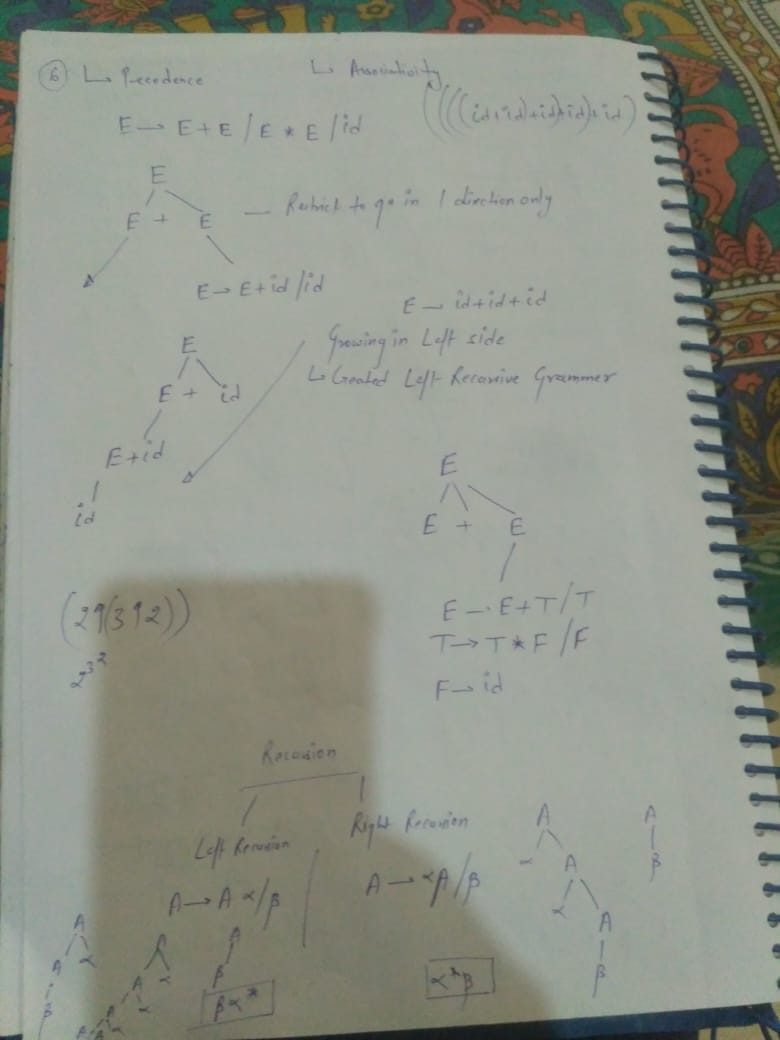 6 ↳ Precedence ↳ Associativity
E → E + E / E * E / id ((((id+id)+id)+id)+id)
E
E + E — Restrict to go in 1 direction only
E → E + id / id
E → id+id+id
Growing in Left side
↳ Created Left Recursive Grammer
E
E + id
E + id
id
E
E + E
E → E + T / T
T → T * F / F
F → id
(2↑(3↑2))
2^3^2
Recursion
Left Recursion Right Recursion
A → A α / β A → αA / β
A
α A
α A
β
A
β
A
A α
β
A
A α
A α
A
β
βα* α*β